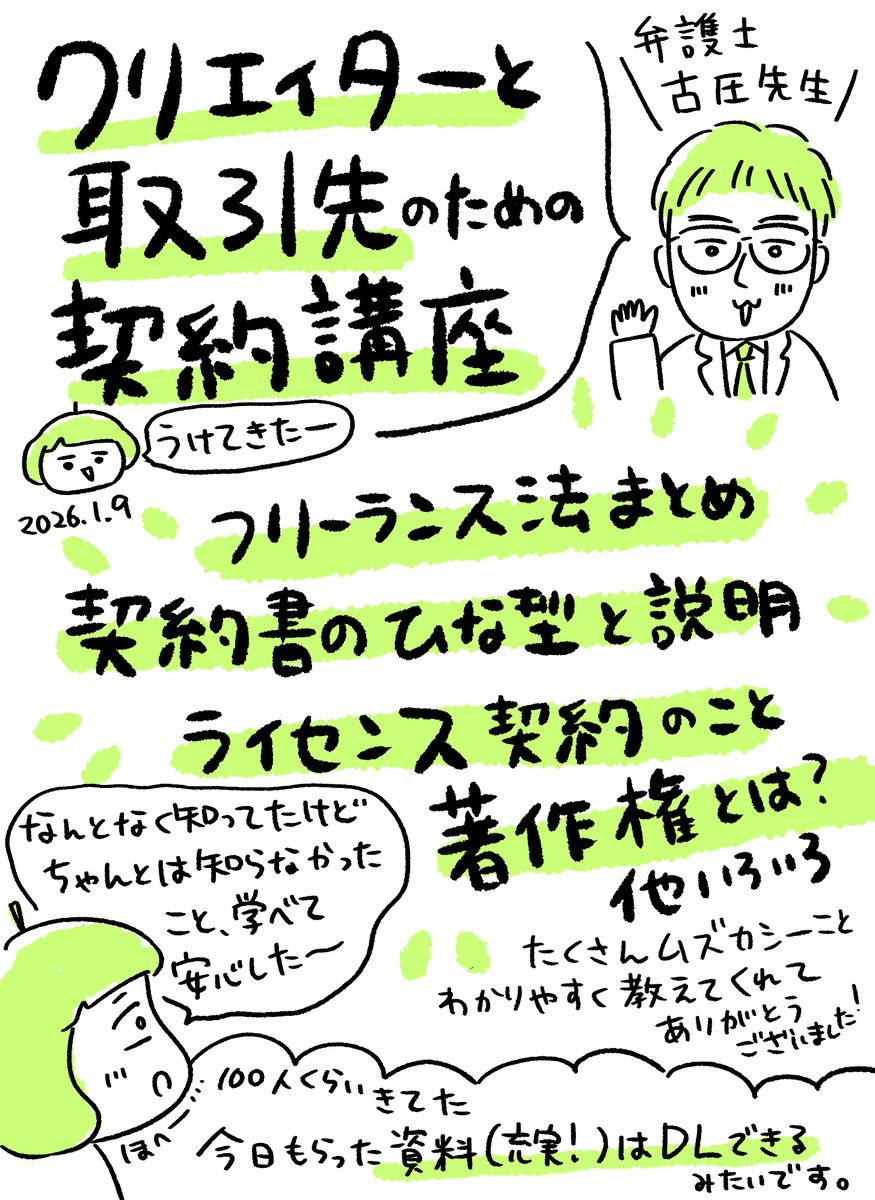 弁護士
古庄先生
クリエイターと
取引先のための
契約講座
うけてきたー
2026.1.9
フリーランス法まとめ
契約書のひな型と説明
ライセンス契約のこと
著作権とは?
他いろいろ
たくさんムズカシーこと
わかりやすく教えてくれて
ありがとう
ございました!
なんとなく知ってたけど
ちゃんとは知らなかった
こと、学べて
安心した〜
ほへー…
100人くらいきてた
今日もらった資料(充実!)はDLできる
みたいです。